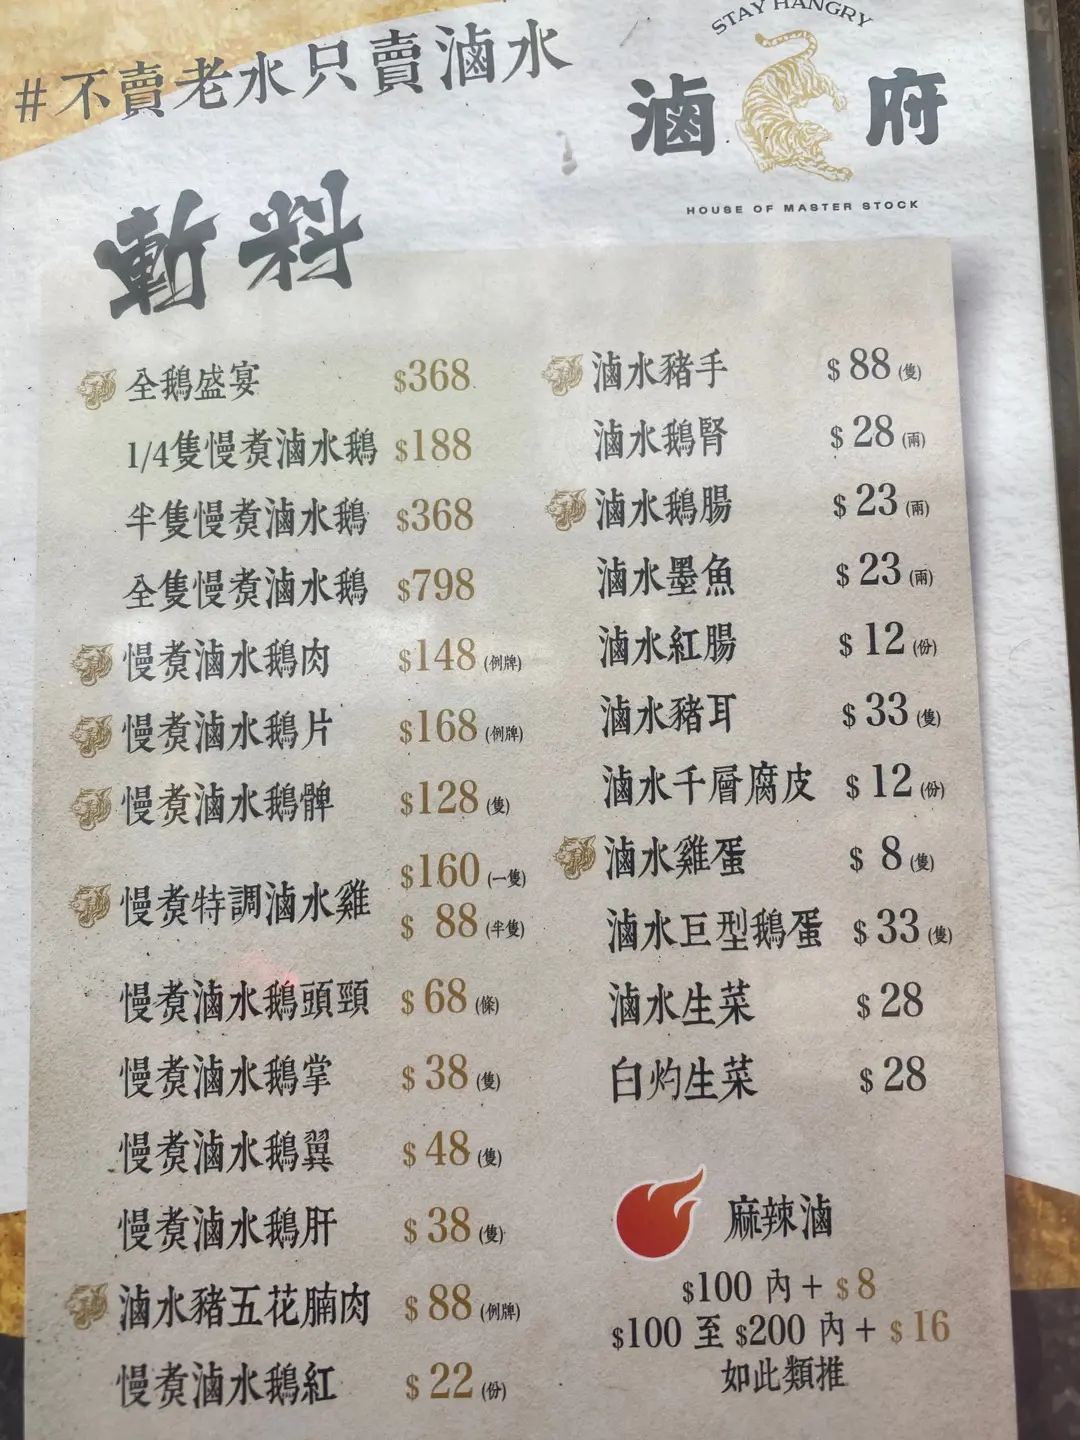 #不賣老水只賣滷水
STAY HANGRY
滷府
HOUSE OF MASTER STOCK
斬料
全鵝盛宴 $368
1/4隻慢煑滷水鵝 $188
半隻慢煑滷水鵝 $368
全隻慢煑滷水鵝 $798
慢煑滷水鵝肉 $148 (例牌)
慢煑滷水鵝片 $168 (例牌)
慢煑滷水鵝髀 $128 (隻)
慢煑特調滷水雞 $160 (一隻)
$ 88 (半隻)
慢煑滷水鵝頭頸 $ 68 (條)
慢煑滷水鵝掌 $ 38 (隻)
慢煑滷水鵝翼 $ 48 (隻)
慢煑滷水鵝肝 $ 38 (隻)
滷水豬五花腩肉 $ 88 (例牌)
慢煑滷水鵝紅 $ 22 (份)
滷水豬手 $ 88 (隻)
滷水鵝腎 $ 28 (兩)
滷水鵝腸 $ 23 (兩)
滷水墨魚 $ 23 (兩)
滷水紅腸 $ 12 (份)
滷水豬耳 $ 33 (隻)
滷水千層腐皮 $ 12 (份)
滷水雞蛋 $ 8 (隻)
滷水巨型鵝蛋 $ 33 (隻)
滷水生菜 $ 28
白灼生菜 $ 28
麻辣滷
$100 內 + $ 8
$100 至 $200 內 + $ 16
如此類推